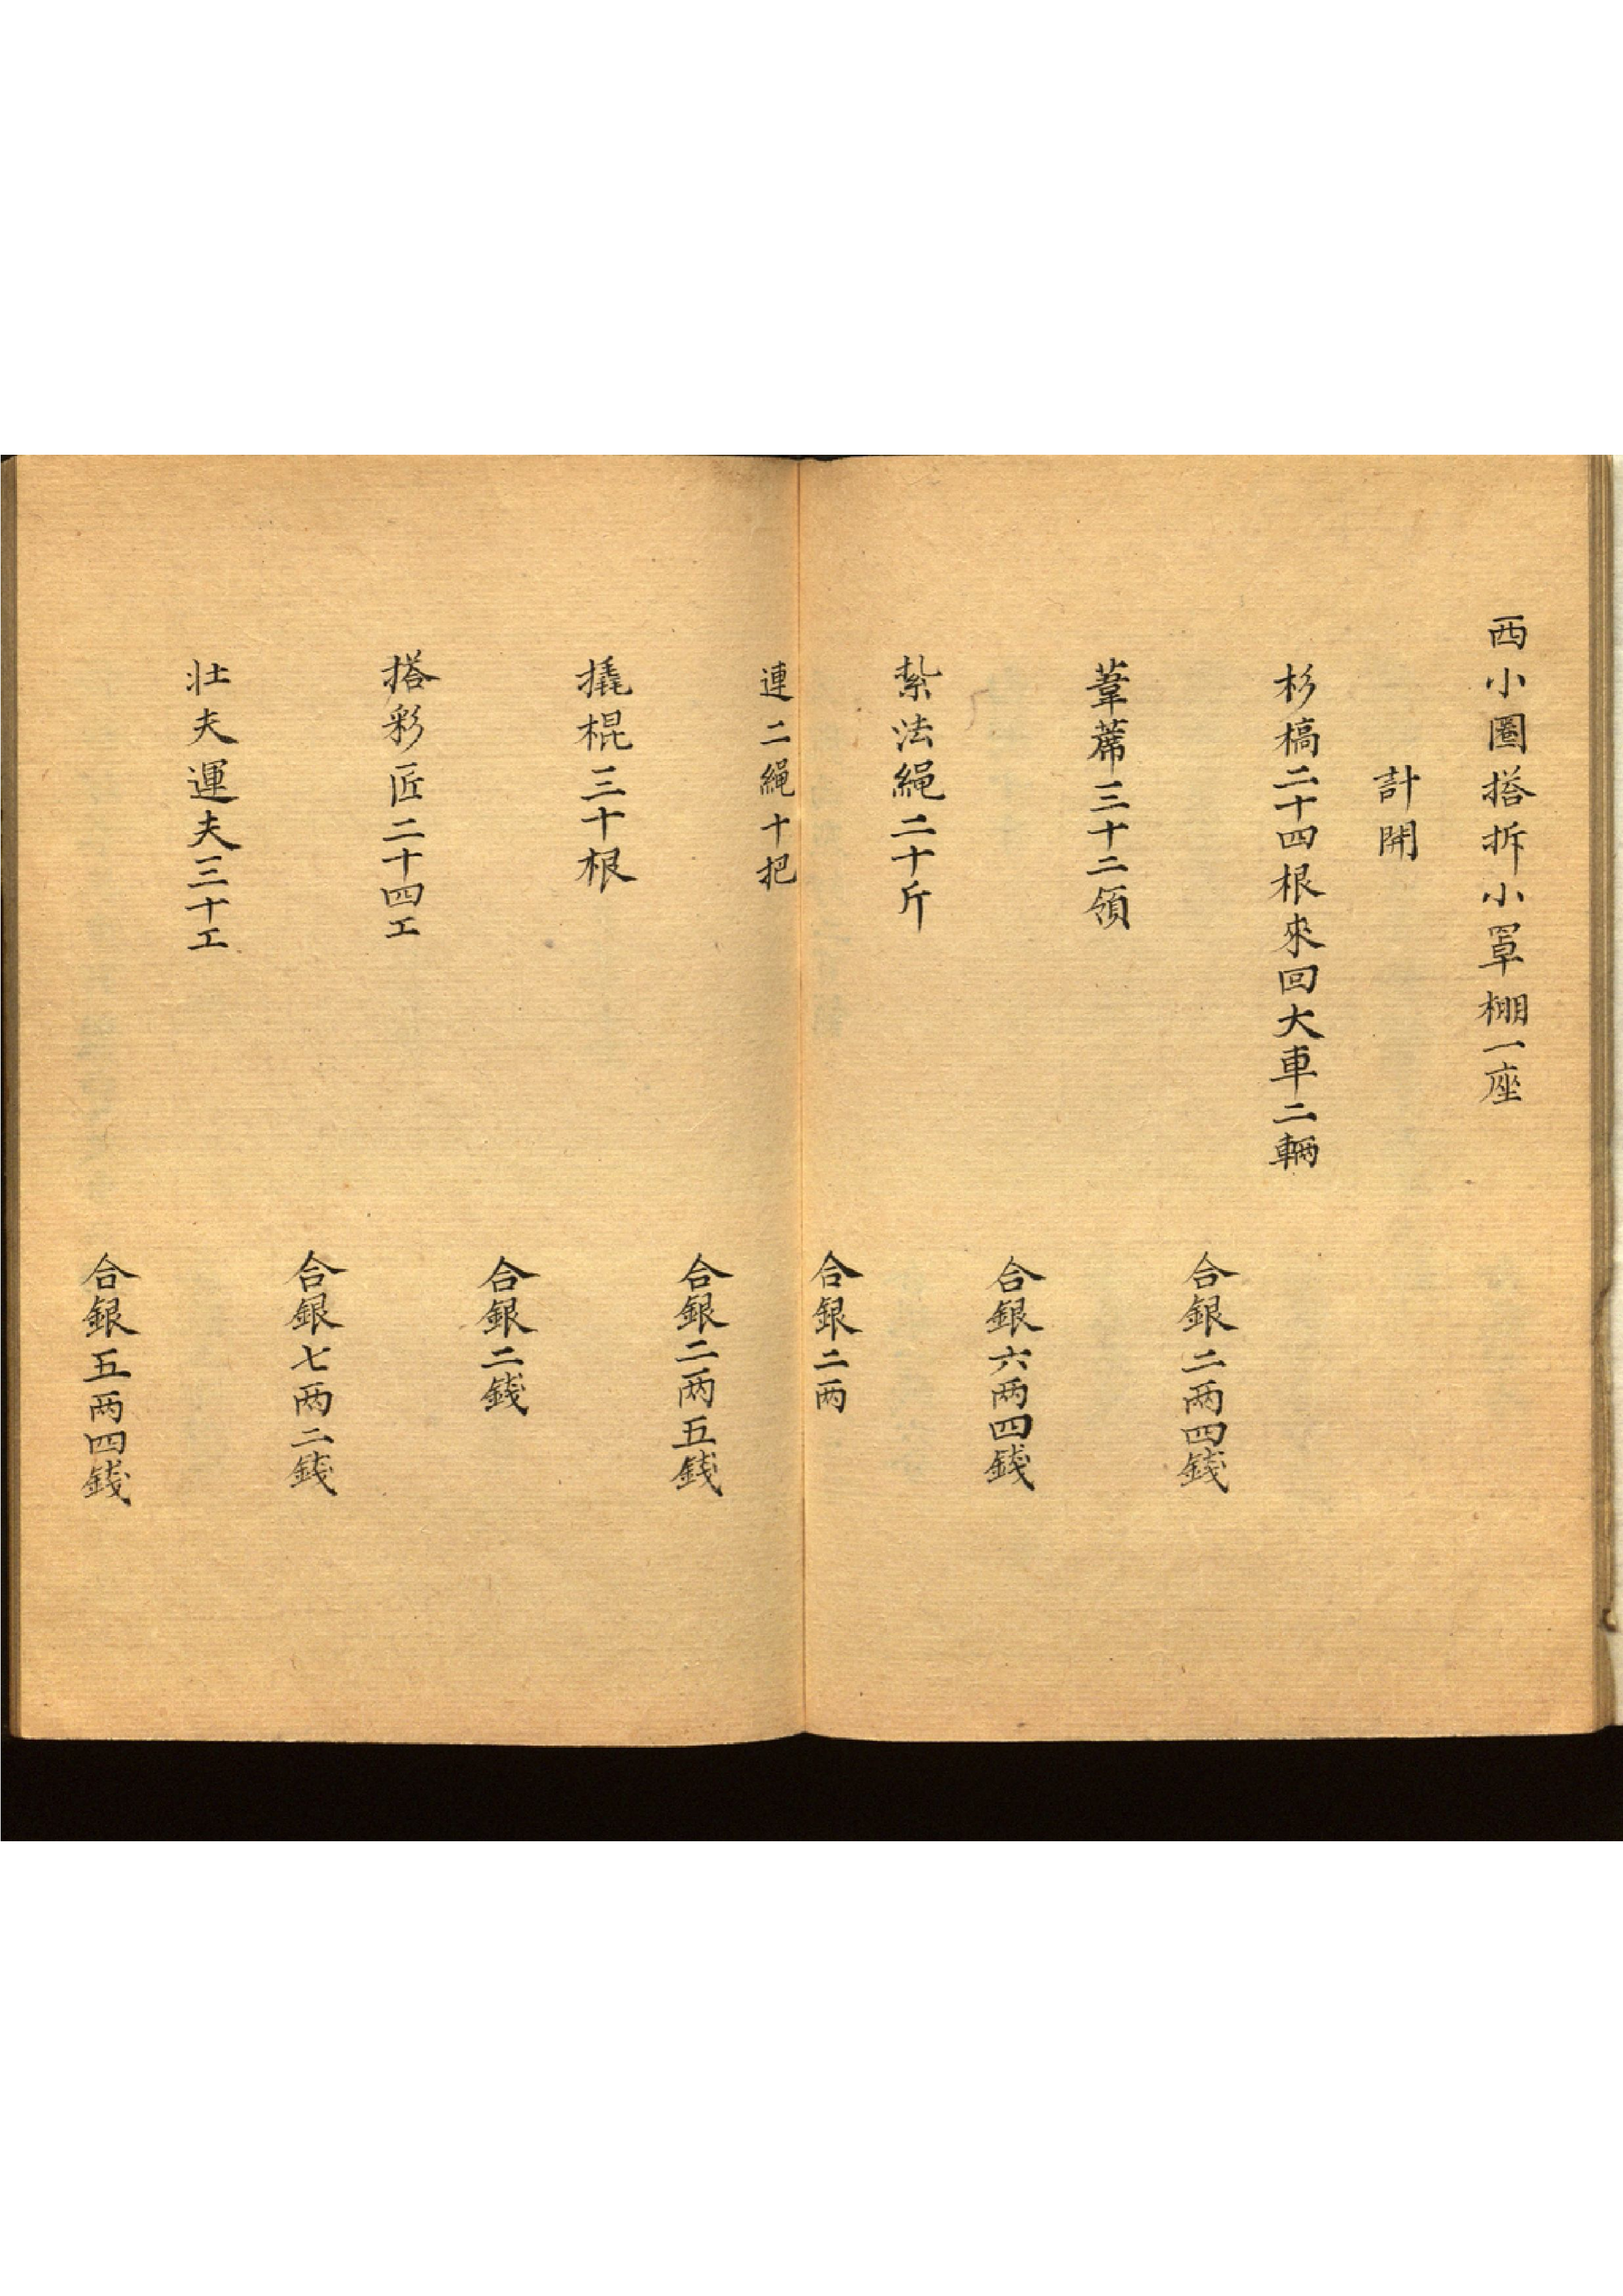 西小圈搭拆小罩棚一座
計開
杉槁二十四根來回大車二輛
合銀二两四錢
葦蓆三十二領
合銀六两四錢
紮法繩二十斤
合銀二两
連二繩十把
合銀二两五錢
撓棍三十根
合銀二錢
搭彩匠二十四工
合銀七两二錢
壮夫運夫三十工
合銀五两四錢